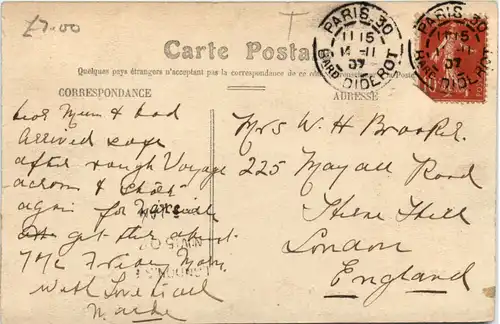 £7.00
T
Carte Postale
Quelques pays étrangers n'acceptant pas la correspondance de ce côté
CORRESPONDANCE
ADRESSE
PARIS. 30
11 15
14-11
07
GARE DIDEROT
PARIS. 30
11 15
07
GARE DIDEROT
Dear Mum & Dad
Arrived safe
after rough Voyage
across &
again for
get there about
Friday Morn.
with love to all
Mrs W. H Brooker.
225 Mayall Road
Herne Hill
London
England